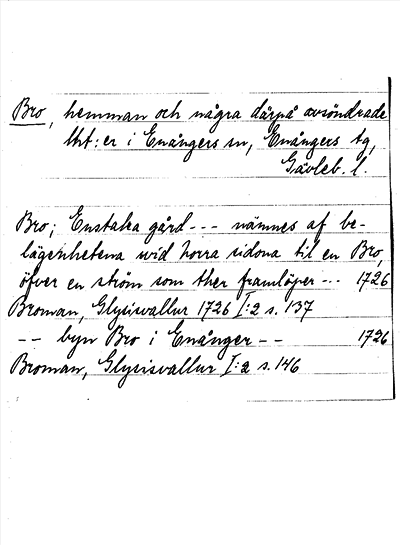 Bro, hemman och några därpå avsöndrade
lht:er i Enångers sn, Enångers tg,
Gävleb. l.
Bro; Enstaka gård --- nämnes af be-
lägenhetena wid norra sidona til en Bro,
öfver en ström som ther framlöper --- 1726
Broman, Glysisvallur 1726 I:2 s. 137
-- byn Bro i Enånger -- 1726
Broman, Glysisvallur I:2 s. 146